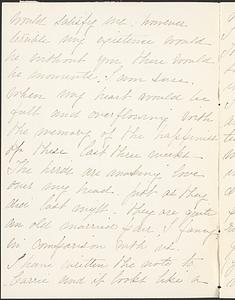 would satisfy me. however
terrible my existence would
be without you there would
be moments, I am sure.
when my heart would be
full and overflowing with
the memory of the happiness
of these last three weeks.
The birds are making love
over my head. just as they
did last night. they are quite
an old married pair I fancy
in comparison with us.
I have written the note to
Carrie and it looks like a